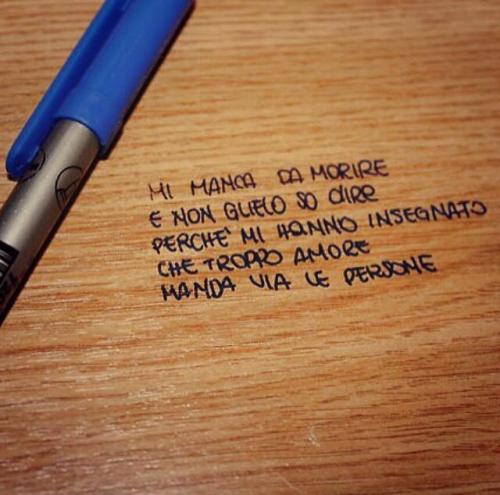 MI MANCA DA MORIRE
E NON GLIELO SO DIRE
PERCHE' MI HANNO INSEGNATO
CHE TROPPO AMORE
MANDA VIA LE PERSONE